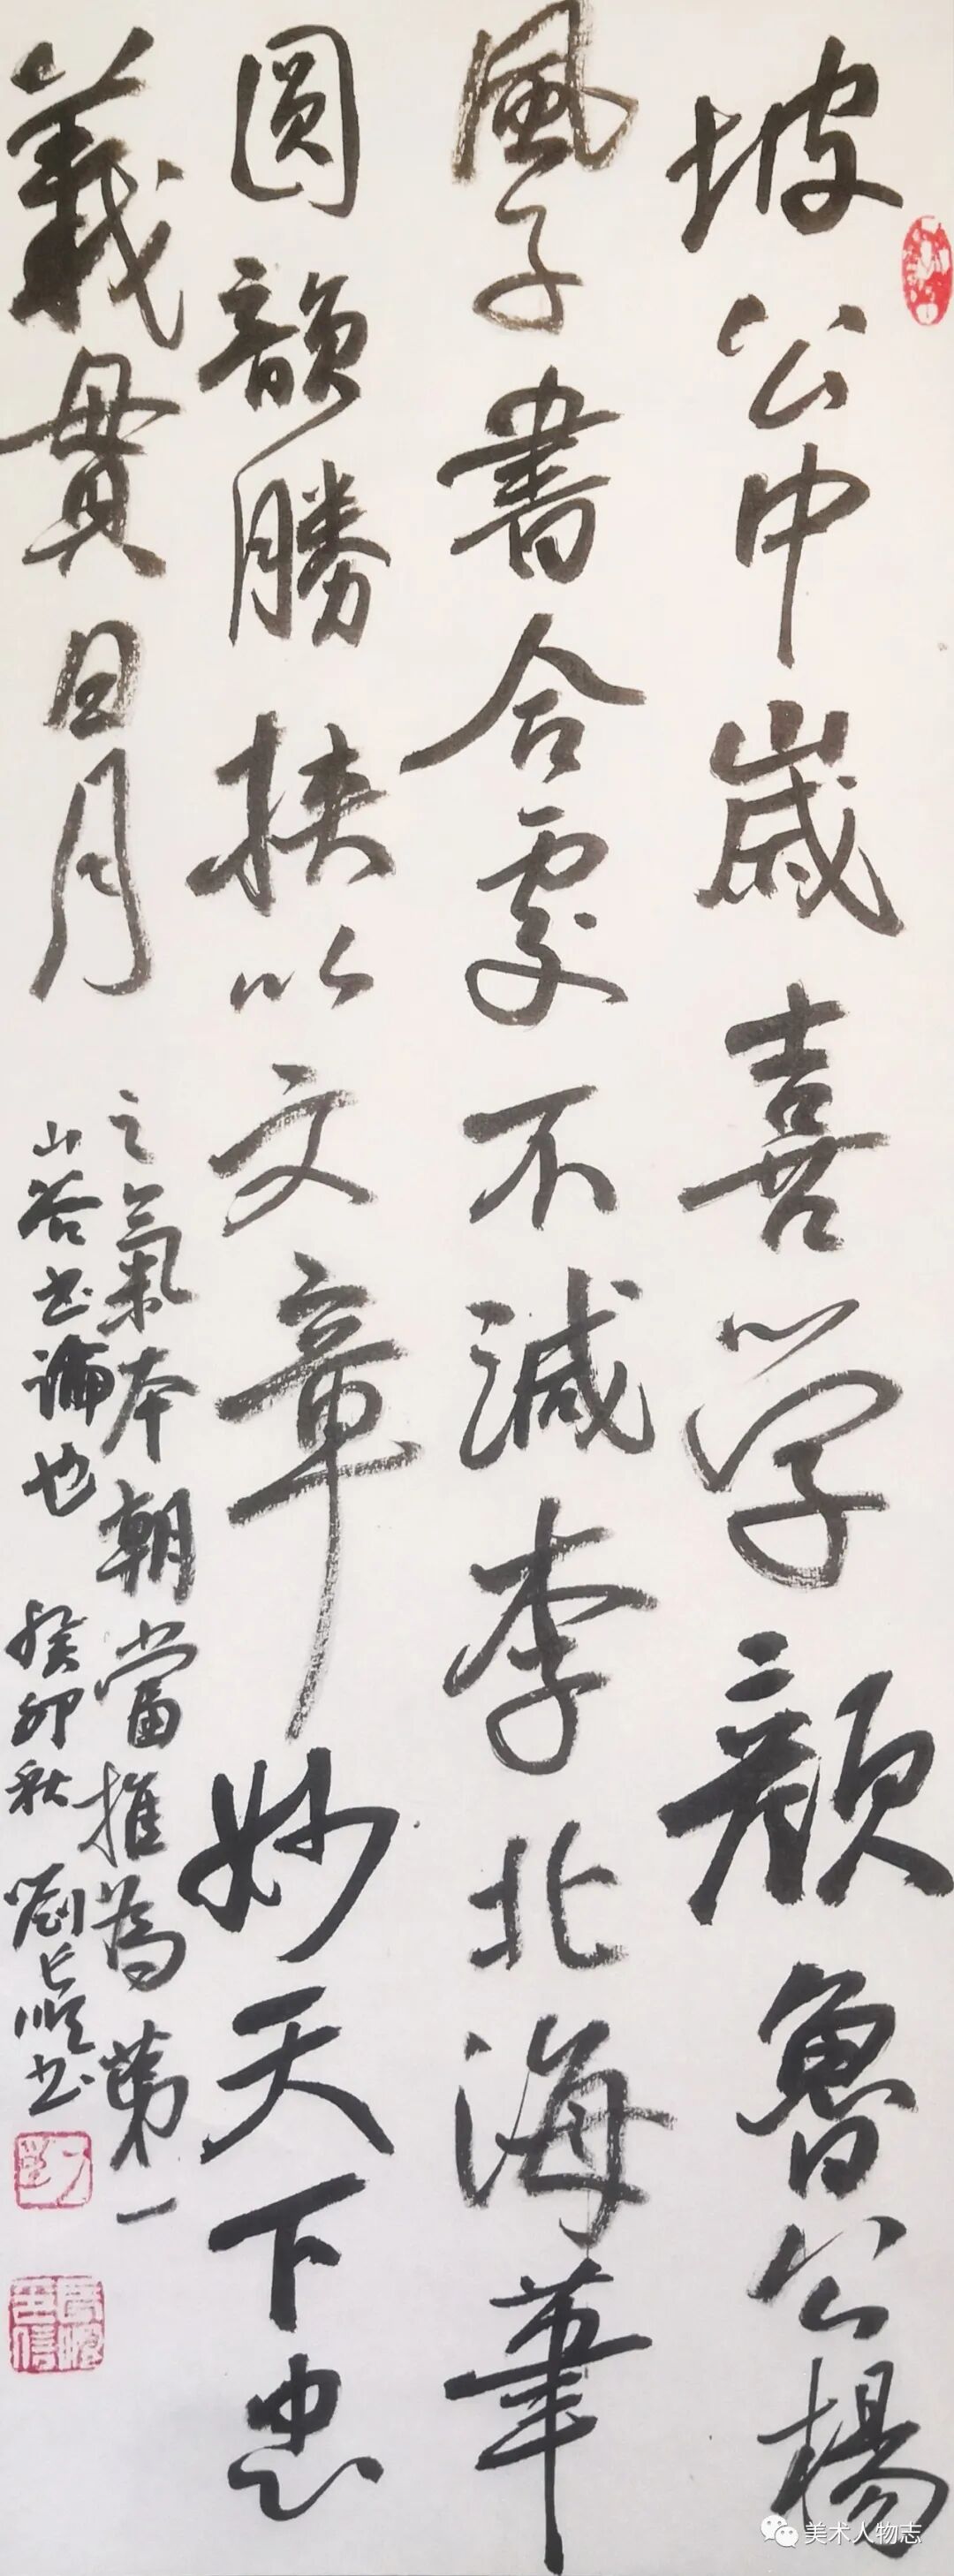 坡公中歲喜学顔魯公楊
風子書合處不減李北海筆
圓韻勝挾以文章妙天下忠
義貫日月
之氣本朝當推為第一
山谷書論也 癸卯秋 劉長順书
美术人物志